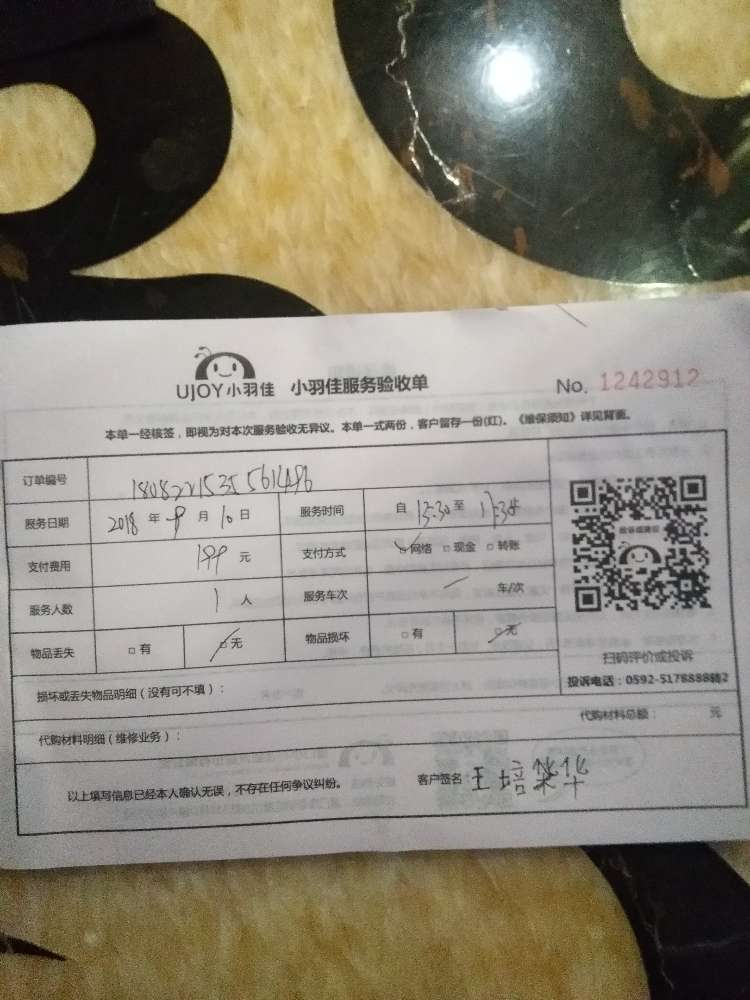 UJOY小羽佳 小羽佳服务验收单 No. 1242912
本单一经核签，即视为对本次服务验收无异议。本单一式两份，客户留存一份(红)。《维保须知》详见背面。
订单编号
服务日期 2018 年 9 月 10 日 服务时间 自 15:30 至 17:35
支付费用 199 元 支付方式 ☑网络 □现金 □转账
服务人数 1 人 服务车次 / 车/次
物品丢失 □有 ☑无 物品损坏 □有 ☑无
扫码评价或投诉
投诉电话：0592-5178888转2
损坏或丢失物品明细（没有可不填）：
代购材料明细（维修业务）： 代购材料总额： 元
以上填写信息已经本人确认无误，不存在任何争议纠纷。 客户签名：王培华